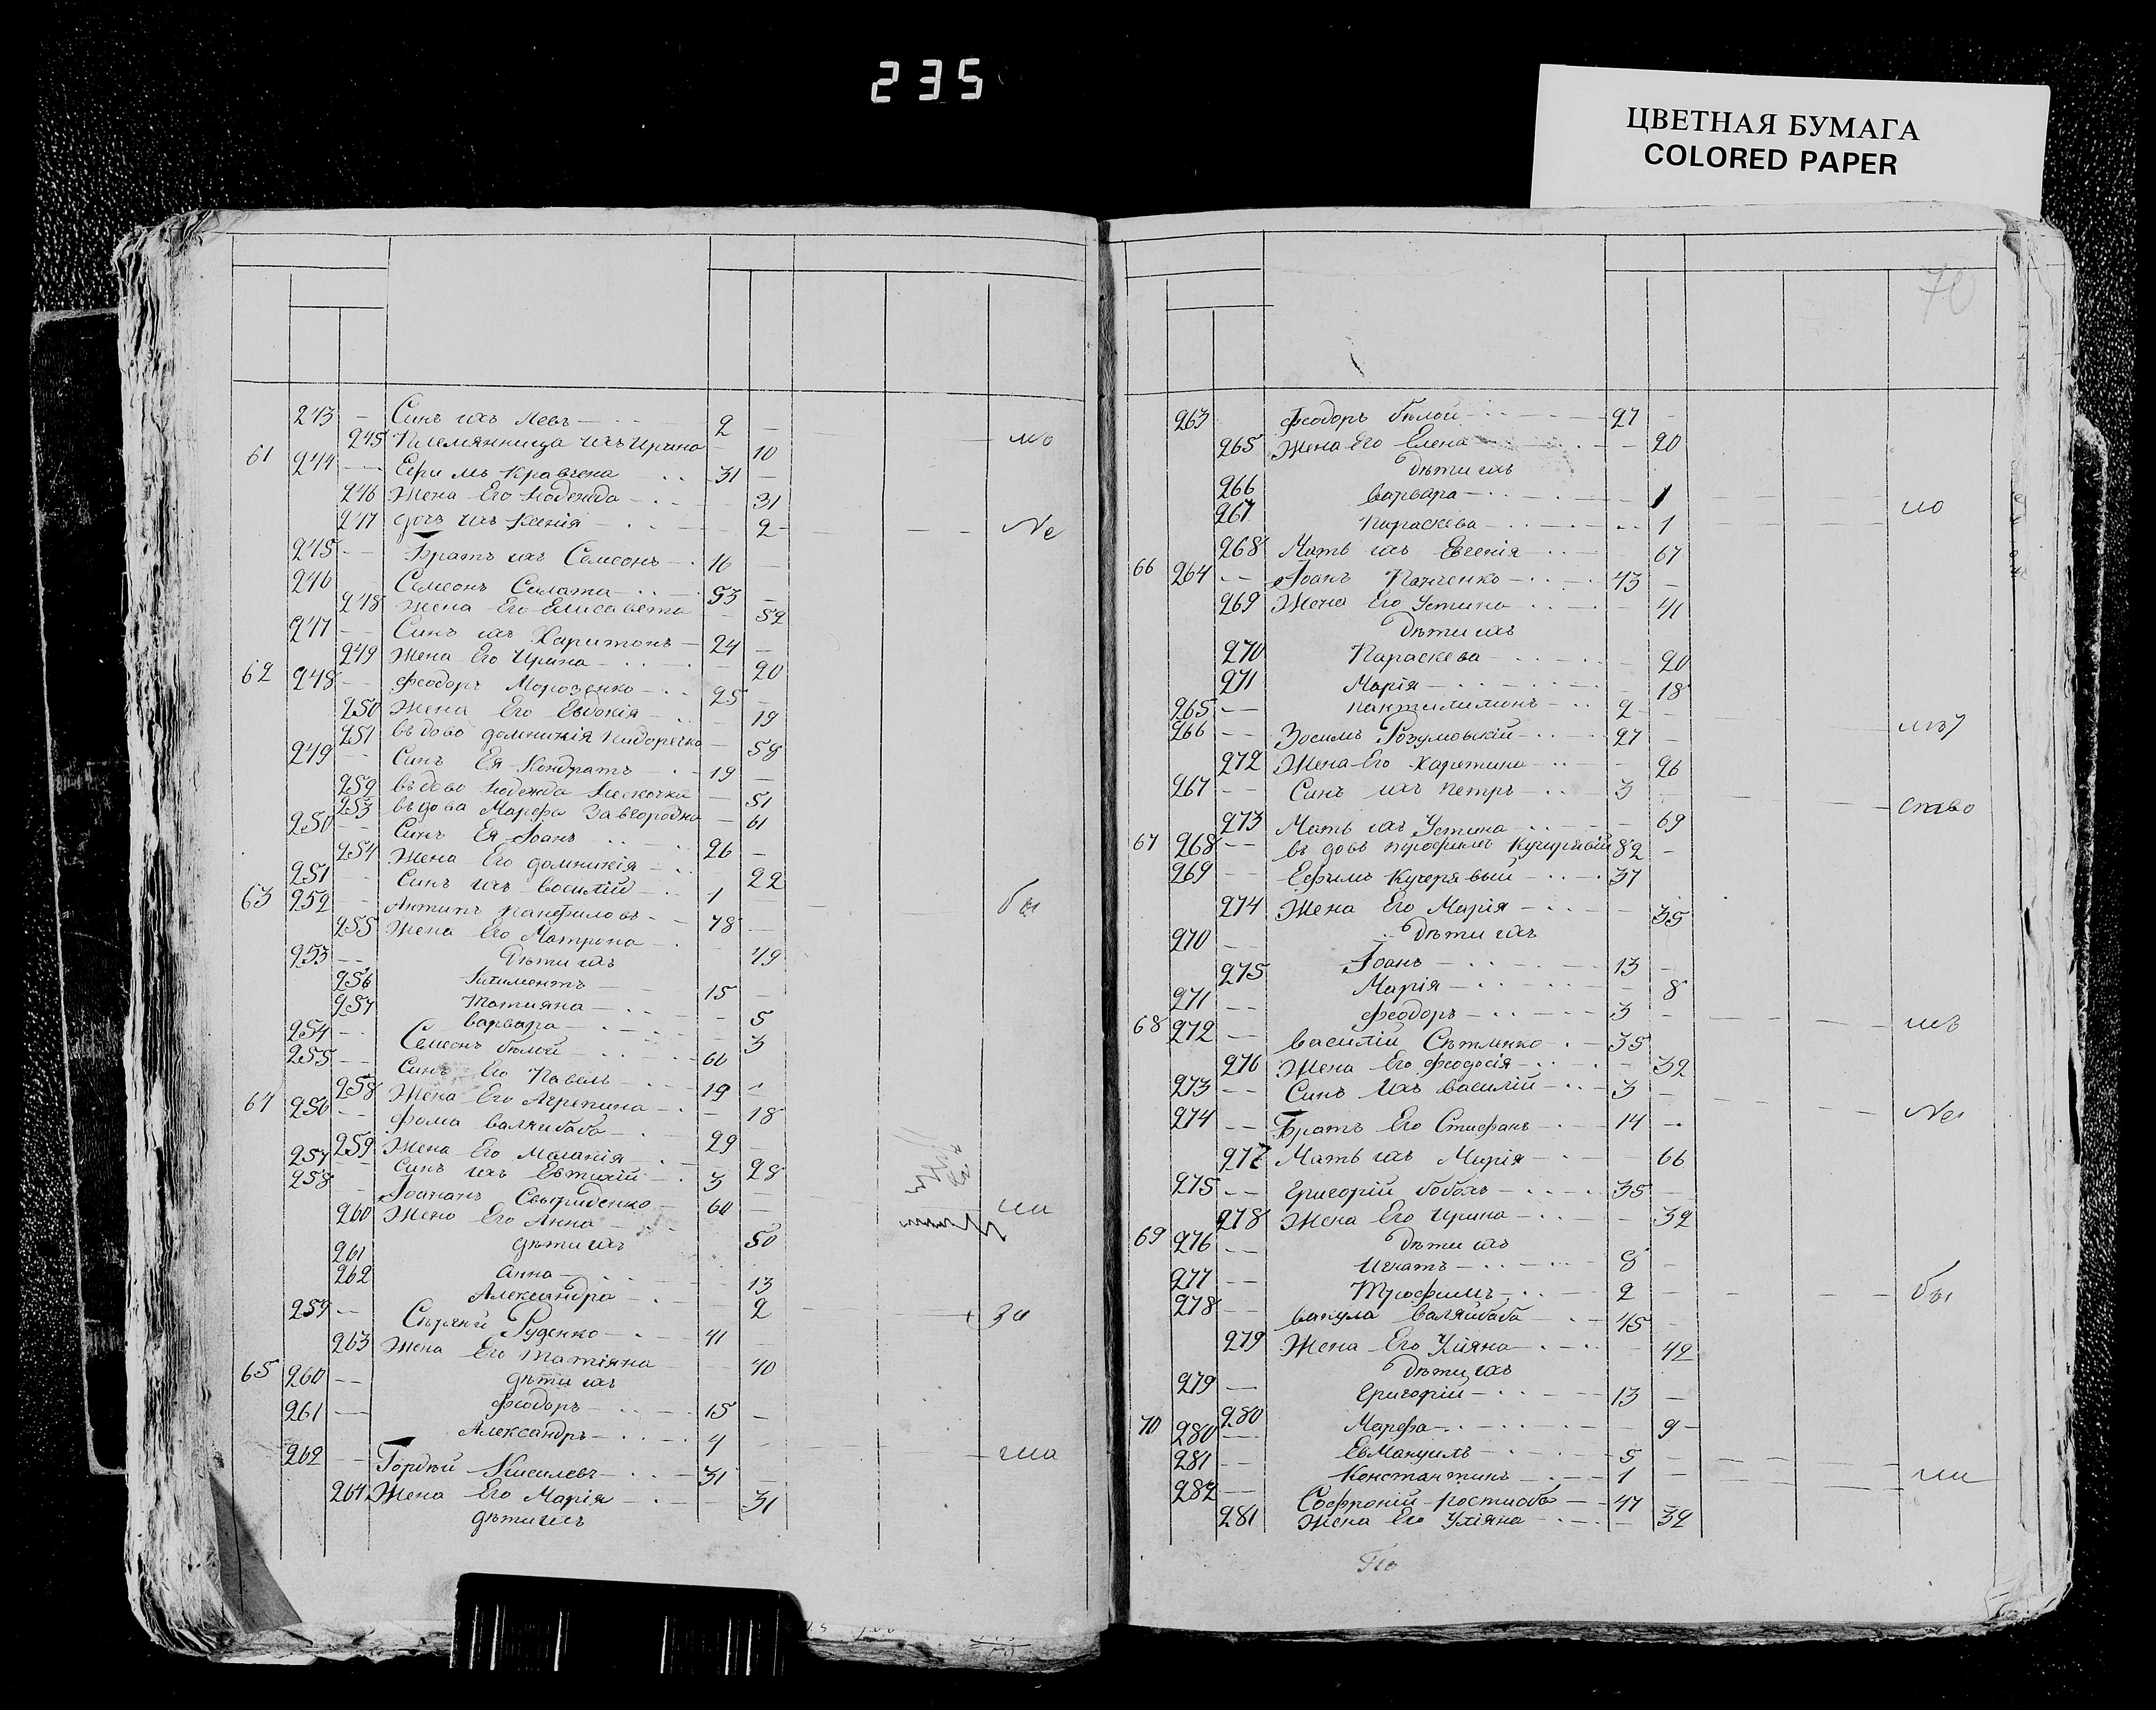 235
ЦВЕТНАЯ БУМАГА
COLORED PAPER
243 — Синъ ихъ Левъ 2 —
245 Племянница ихъ Ирина — 10 но
61 244 — Ефимъ Кравчена 31 —
246 Жена Его Надежда 31
247 Дочъ ихъ Ксенія 2 Не
245 — Братъ ихъ Семеонъ 16 —
246 Семеонъ Силата 53 —
248 Жена Его Елисавета — 52
247 — Синъ ихъ Харитонъ 24 —
249 Жена Его Ирина — 20
62 248 — Феодоръ Морозенко 25 —
250 Жена Его Евдокія — 19
251 въдова домникія — 58
249 — Синъ Ея Кондратъ 19 —
252 въдова Надежда — 51
253 въдова Марфа Завгородня — 61
250 — Синъ Ея Іоанъ 26 —
254 Жена Его домникія — 22
251 — Синъ ихъ Василій 1 — бы
63 252 — Антипъ Панфиловъ 78 —
255 Жена Его Матрона 49
253 — Дѣти ихъ
256 15 —
257 Татияна — 5
Варвара — 3
254 — Семеонъ Бѣлой 66
255 — Синъ Его Павелъ 19 —
258 Жена Его Агрепина — 18
64 256 — Фома Валяйбаба 29 —
259 Жена Его Маланія 28
257 — Синъ ихъ Евтихій 3 —
258 — Іоананъ Свыриденко 60 — ли
260 Жена Его Анна 50
261 дѣти ихъ
262 Анна 13
Александра 2 за
259 — Сергяй Руденко 41 —
263 Жена Его Татіяна 40
65 260 — дѣти ихъ
Феодоръ 15 —
261 — Александръ 4 — ша
262 — Гордѣй Киселевъ 31 —
264 Жена Его Марія — 31
дѣти ихъ
70
263 Феодоръ Бѣлой 27 —
265 Жена Его Елена — 20
Дѣти ихъ
266 Варвара — 1 но
267 Параскева — 1
268 Мать ихъ Евгенія — 67
66 264 — Іоанъ Панченко 43 —
269 Жена Его Устина — 41
Дѣти ихъ
270 Параскева — 20
271 Марія — 18
265 — Пантилимонъ 2 —
266 — Зосимъ Розумовскій 27 —
272 Жена Его Харетина — 26
267 — Синъ ихъ Петръ 3 — ство
273 Мать ихъ Устина — 69
67 268 — въдовъ Трофимъ Кучерявій 82 —
269 — Ефимъ Кучерявый 37
274 Жена Его Марія — 35
270 — Дѣти ихъ
Іоанъ 13 —
275 Марія — 8
271 — Феодоръ 3 — шъ
68 272 — Василій Сѣтленко 35
276 Жена Его Феодосія — 32
273 — Синъ Ихъ Василій 3 — Не
274 — Братъ Его Стифанъ 14 —
277 Мать ихъ Марія — 66
275 — Григорій Бобохъ 35 —
278 Жена Его Ирина — 32
69 276 — Дѣти ихъ
Игнатъ 8 —
277 — Трофимъ 2 — бы
278 — Вакула Валяйбаба 45 —
279 Жена Его Уліяна — 42
Дѣти ихъ
279 — Григорій 13 —
280 Марфа — 9
70 280 — ЕвМануилъ 5 —
281 — Константинъ 1 — ли
282 — Софроній Костиоба 47
281 Жена Его Уліяна — 32
По